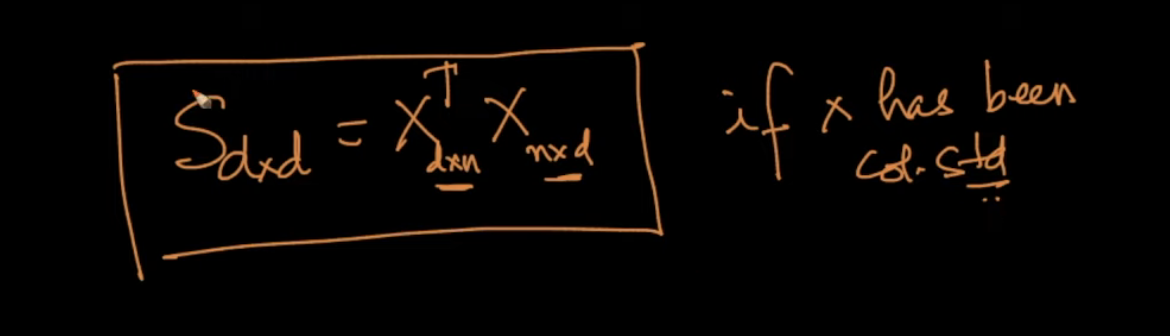 S_{d×d} = X^T_{d×n} X_{n×d}
if x has been
col. std